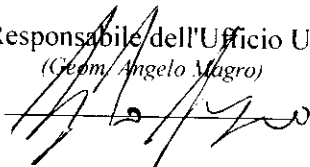 Responsabile dell'Ufficio U
(Geom. Angelo Magro)